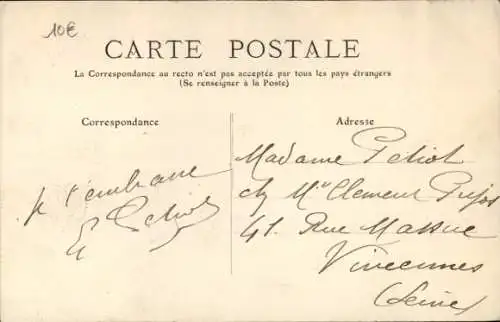 10€
CARTE POSTALE
La Correspondance au recto n'est pas acceptée par tous les pays étrangers
(Se renseigner à la Poste)
Correspondance
Adresse
je t'embrasse
E Petiot
Madame Petiot
ch Mr Clement
41. Rue Massue
Vincennes
(Seine)